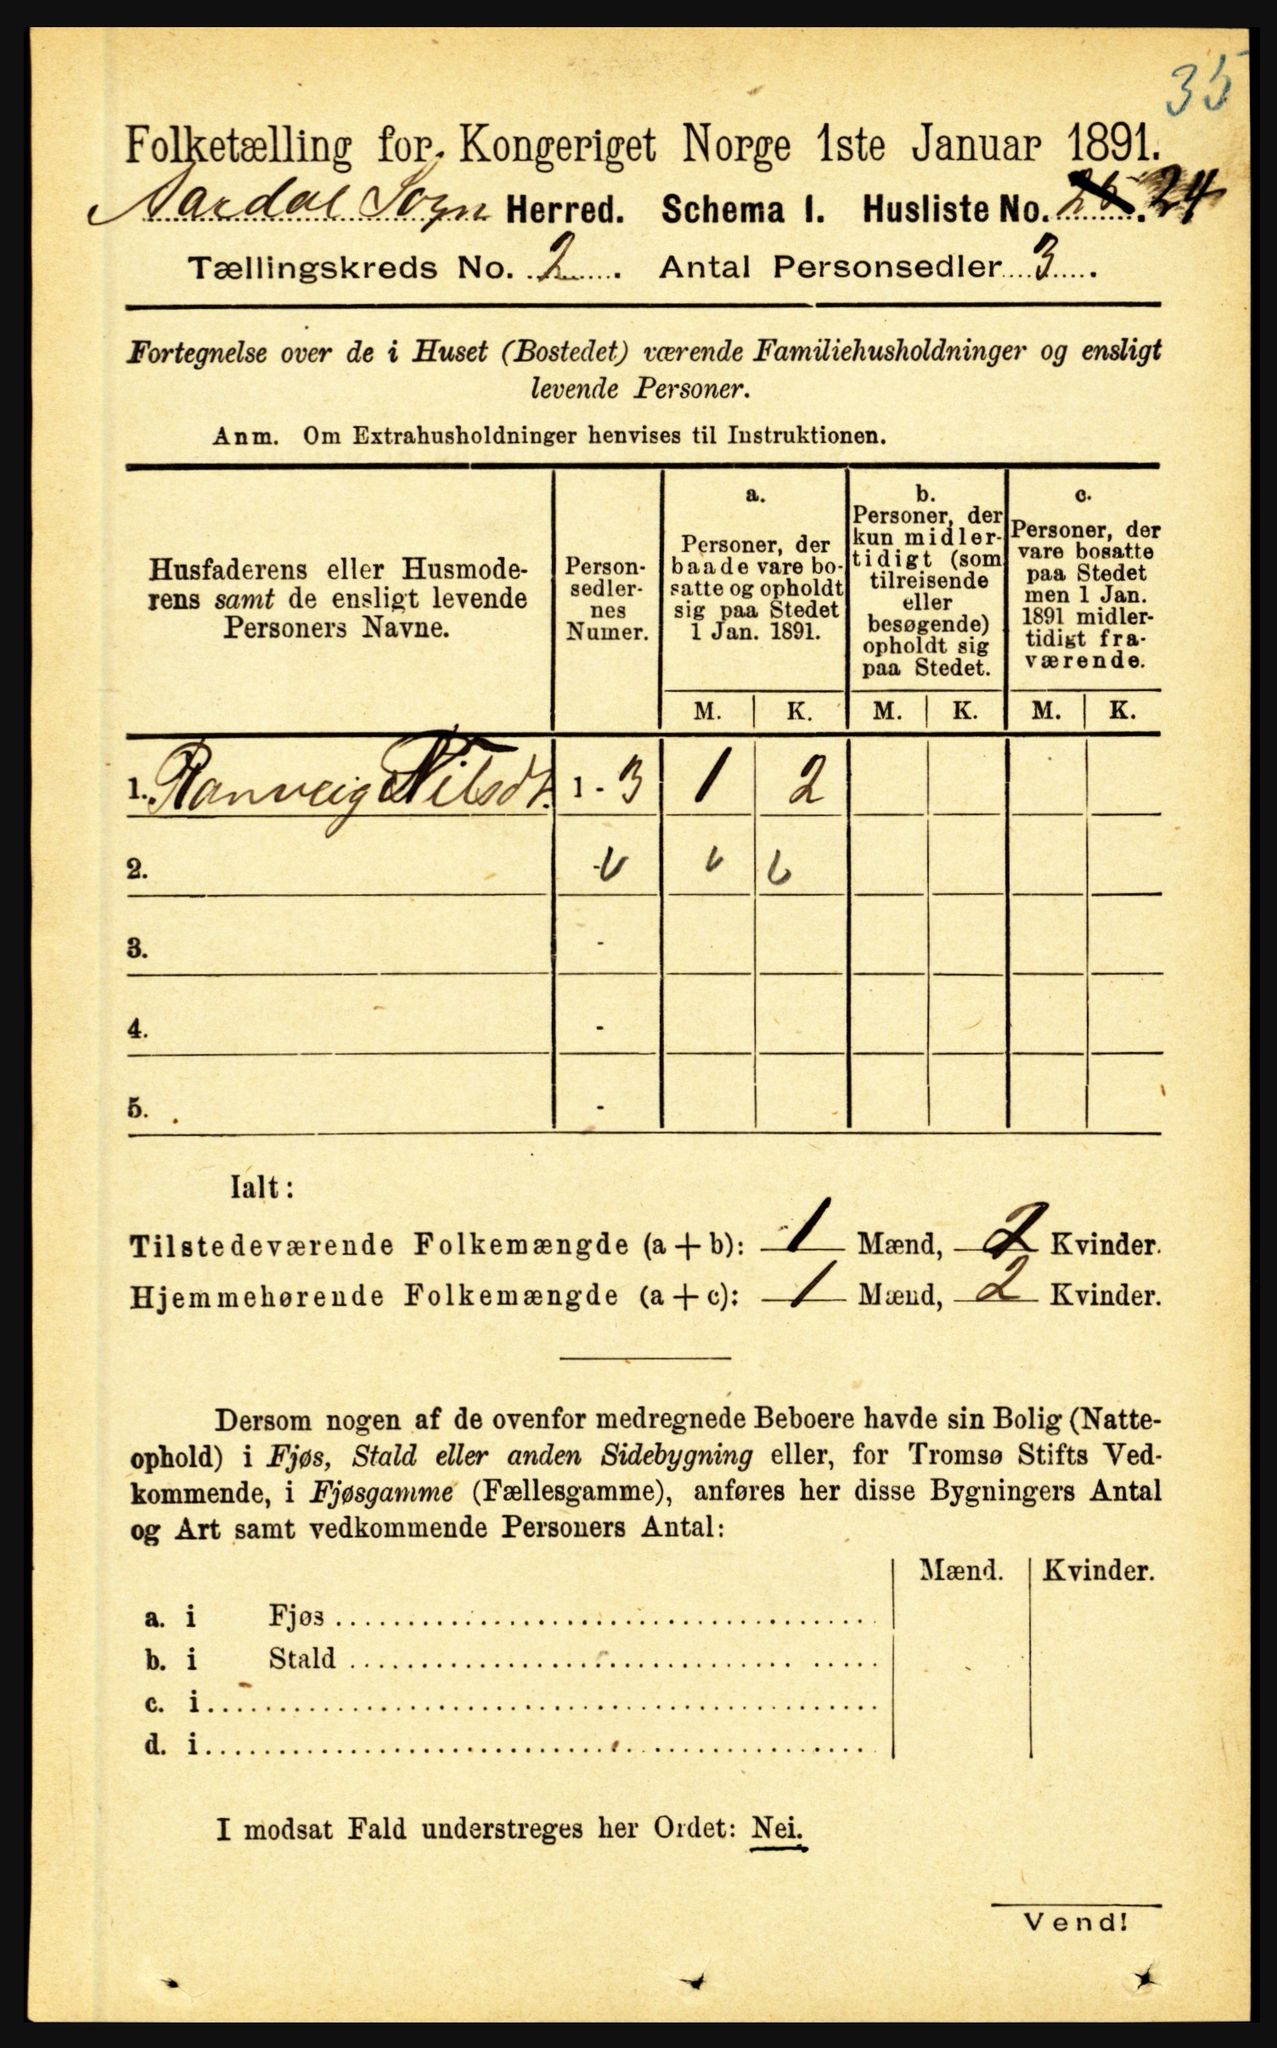 35
Folketælling for Kongeriget Norge 1ste Januar 1891.
Aardal Sogn Herred. Schema I. Husliste No. 24
Tællingskreds No. 2. Antal Personsedler 3.
Fortegnelse over de i Huset (Bostedet) værende Familiehusholdninger og ensligt
levende Personer.
Anm. Om Extrahusholdninger henvises til Instruktionen.
Husfaderens eller Husmode-
rens samt de ensligt levende
Personers Navne.
Person-
sedler-
nes
Numer.
a.
Personer, der
baade vare bo-
satte og opholdt
sig paa Stedet
1 Jan. 1891.
b.
Personer, der
kun midler-
tidigt (som
tilreisende
eller
besøgende)
opholdt sig
paa Stedet.
c.
Personer, der
vare bosatte
paa Stedet
men 1 Jan.
1891 midler-
tidigt fra-
værende.
M. K. M. K. M. K.
1. Ranveig Nilsdt. 1 - 3 1 2
2.
3. -
4. -
5. -
Ialt:
Tilstedeværende Folkemængde (a + b): 1 Mænd, 2 Kvinder.
Hjemmehørende Folkemængde (a + c): 1 Mænd, 2 Kvinder.
Dersom nogen af de ovenfor medregnede Beboere havde sin Bolig (Natte-
ophold) i Fjøs, Stald eller anden Sidebygning eller, for Tromsø Stifts Ved-
kommende, i Fjøsgamme (Fællesgamme), anføres her disse Bygningers Antal
og Art samt vedkommende Personers Antal:
Mænd. Kvinder.
a. i Fjøs
b. i Stald
c. i
d. i
I modsat Fald understreges her Ordet: Nei.
Vend!